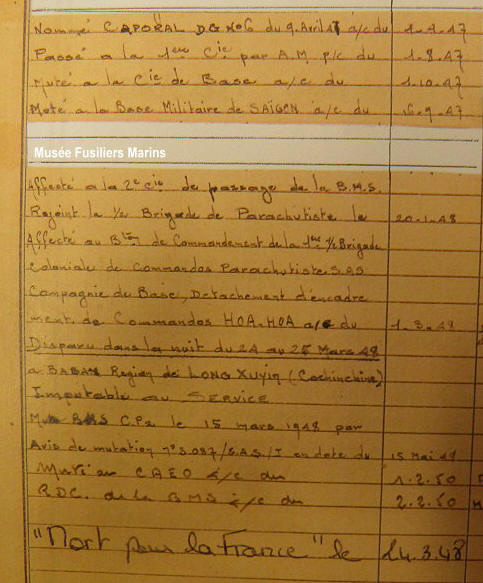 Nommé CAPORAL D.G. N°6 du 9 Avril 47 a/c du 1-4-47
Passé a la 1ère Cie par A.M. p/c du 1-8-47
Muté a la Cie de Base a/c du 1-10-47
Muté a la Base Militaire de SAÏGON a/c du 16-9-47
Musée Fusiliers Marins
Affecté a la 2e Cie de passage de la B.M.S.
Rejoint la 1/2 Brigade de Parachutiste le 20-1-48
Affecté au Bton de Commandement de la 1ère 1/2 Brigade
Coloniale de Commandos Parachutiste S.A.S
Compagnie de Base, Détachement d'encadre
ment de Commandos HOA-HOA a/c du 1-3-48
Disparu dans la nuit du 24 au 25 Mars 48
a BABAN Region de LONG XUYIN (Cochinchine)
Imputable au SERVICE
BMS C.P2 le 15 mars 1948 par
Avis de mutation n° 3.087/S.A.S/I en date du 15 Mai 48
Muté au CAEO a/c du 1-2-50
R.D.C. de la BMS a/c du 2-2-50
"Mort pour la France" le 24.3.48